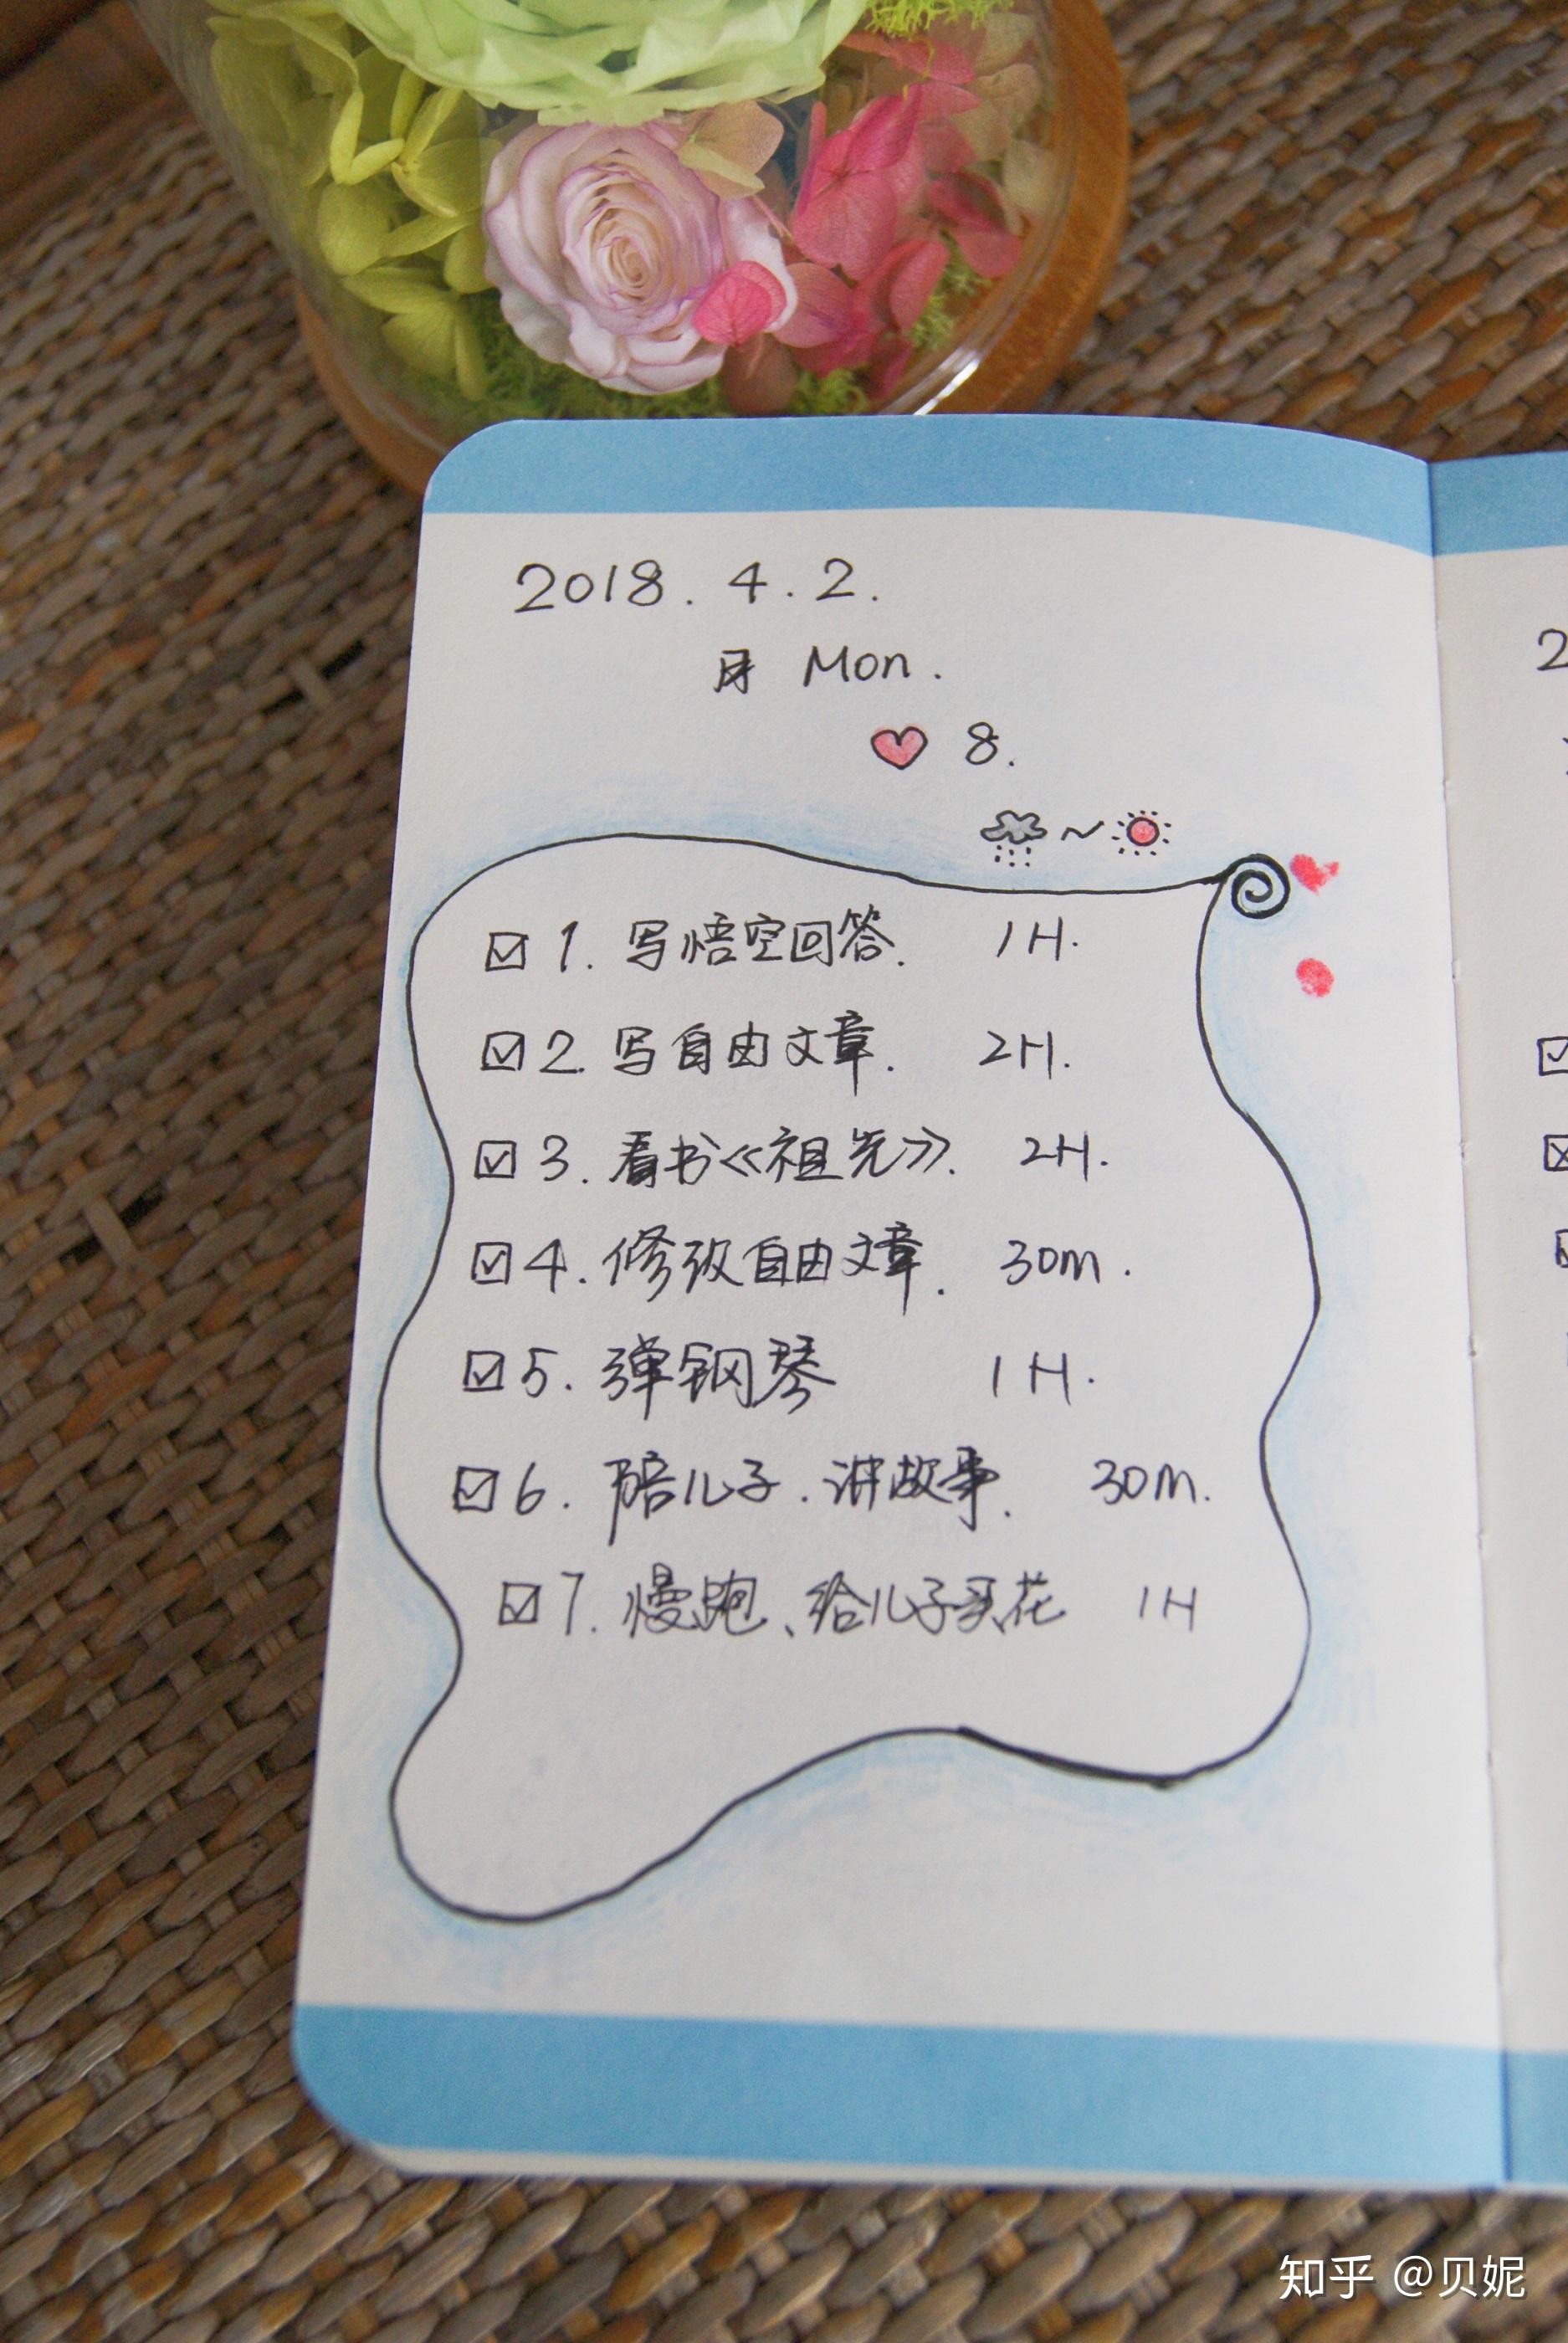 2018.4.2.
月 Mon.
8.
~
☑1. 写悟空回答. 1H.
☑2. 写自由文章. 2H.
☑3. 看书《祖先》. 2H.
☑4. 修改自由文章. 30m.
☑5. 弹钢琴 1H.
☑6. 陪儿子.讲故事. 30m.
☑7. 慢跑、给儿子买花 1H
2
知乎 @贝妮